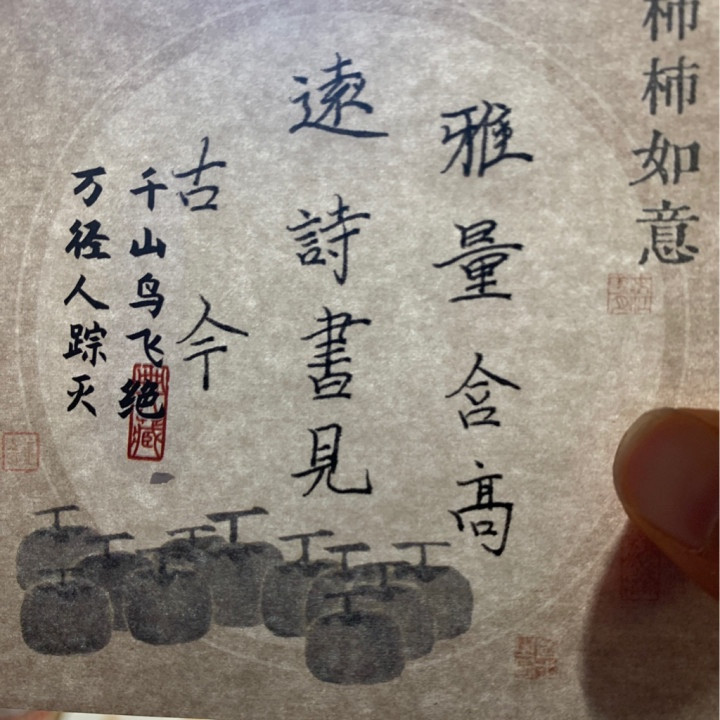 柿柿如意
雅量含高
遠詩書見
古今
千山鸟飞绝
万径人踪灭